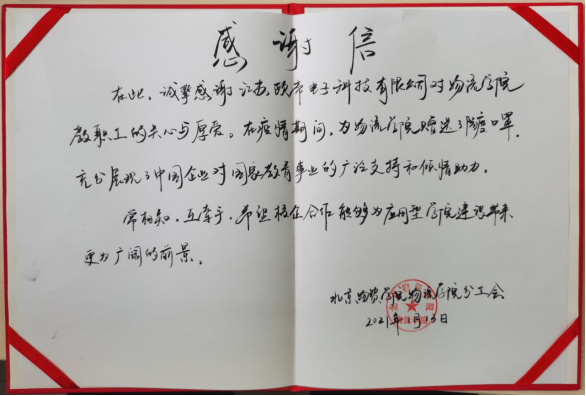 感谢信
在此，诚挚感谢江苏政中电子科技有限公司对物流学院
教职工的关心与厚爱。在疫情期间，为物流学院赠送了防疫口罩，
充分展现了中国企业对国家教育事业的广泛支持和倾情助力。
常相知，互牵手，希望校企合作能够为应用型学院建设带来
更为广阔的前景。
北京物资学院物流学院分工会
2021年 月13日